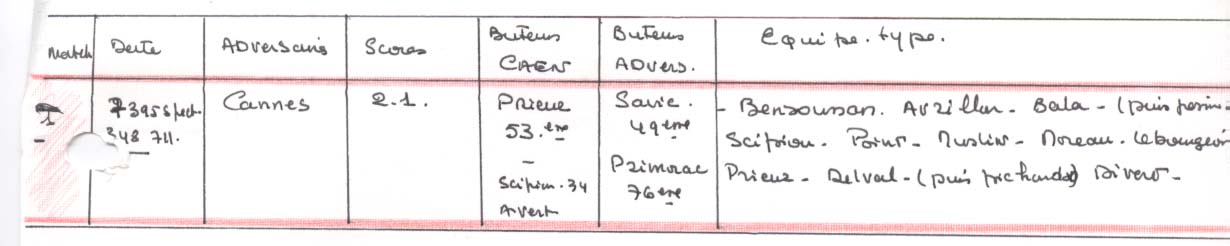 Match
Date
Adversaire
Scores
Buteurs
CAEN
Buteurs
Advers.
Equipe. type.
7395 Spect.
348 711.
Cannes
2.1.
Prieur
53.ème
-
Scipion. 34
Avert
Savic.
49ème
Primorac
76ème
- Bensoussan. Avzillur. Bala - (puis
Scipion. Point - Muslin - Moreau. Lebourgeois
Prieur - Delval - (puis ) Rivero -